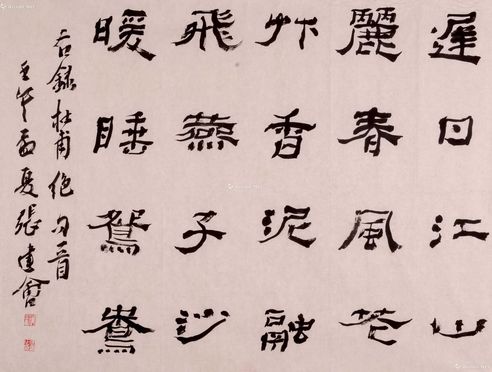 遲日江山
麗春風花
艸香泥融
飛燕子沙
暖睡鴛鴦
右錄杜甫絕句一首
壬午孟夏張建會